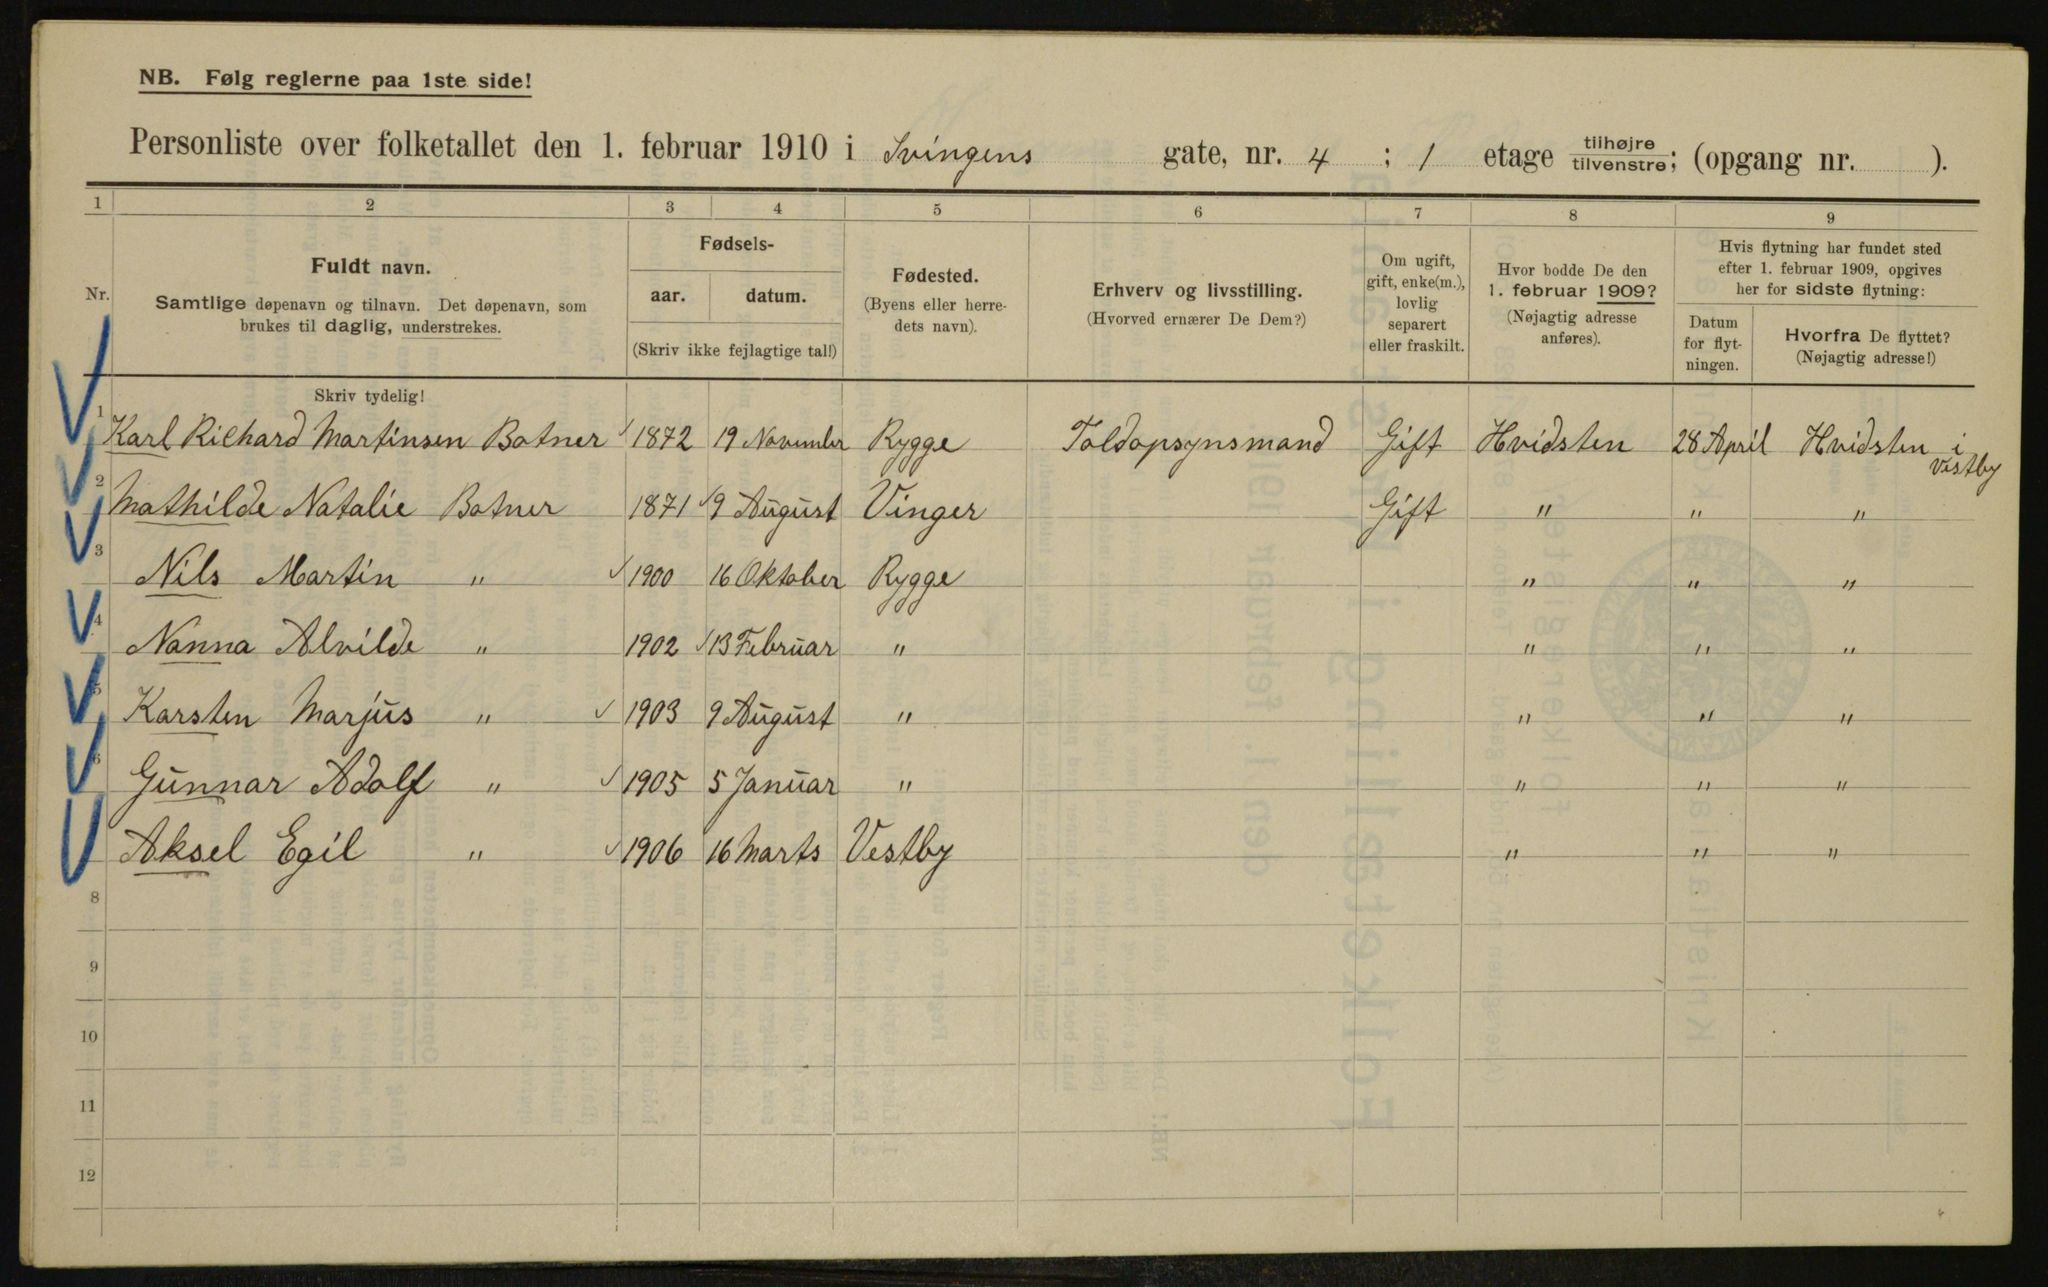 NB. Følg reglerne paa 1ste side!
Personliste over folketallet den 1. februar 1910 i Svingens gate, nr. 4 ; 1 etage tilhøjre tilvenstre; (opgang nr. ).
1 2 3 4 5 6 7 8 9
Nr.
Fuldt navn.
Samtlige døpenavn og tilnavn. Det døpenavn, som
brukes til daglig, understrekes.
Fødsels-
aar. datum.
(Skriv ikke fejlagtige tal!)
Fødested.
(Byens eller herre-
dets navn).
Erhverv og livsstilling.
(Hvorved ernærer De Dem?)
Om ugift,
gift, enke(m.),
lovlig
separert
eller fraskilt.
Hvor bodde De den
1. februar 1909?
(Nøjagtig adresse
anføres).
Hvis flytning har fundet sted
efter 1. februar 1909, opgives
her for sidste flytning:
Datum
for flyt-
ningen.
Hvorfra De flyttet?
(Nøjagtig adresse!)
Skriv tydelig!
1 Karl Richard Martinsen Botner 1872 19 November Rygge Toldopsynsmand Gift Hvidsten 28 April Hvidsten i Vestby
2 Mathilde Natalie Botner 1871 9 August Vinger Gift " " "
3 Nils Martin " 1900 16 Oktober Rygge " " "
4 Nanna Alvilde " 1902 13 Februar " " " "
5 Karsten Marjus " 1903 9 August " " " "
6 Gunnar Adolf " 1905 5 Januar " " " "
Aksel Egil " 1906 16 Marts Vestby " " "
8
9
10
11
12